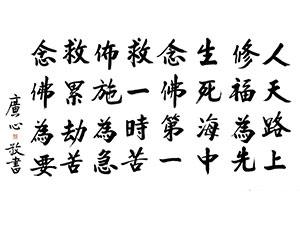 人天路上
修福為先
生死海中
念佛第一
救一時苦
佈施為急
救累劫苦
念佛為要
廣心敬書